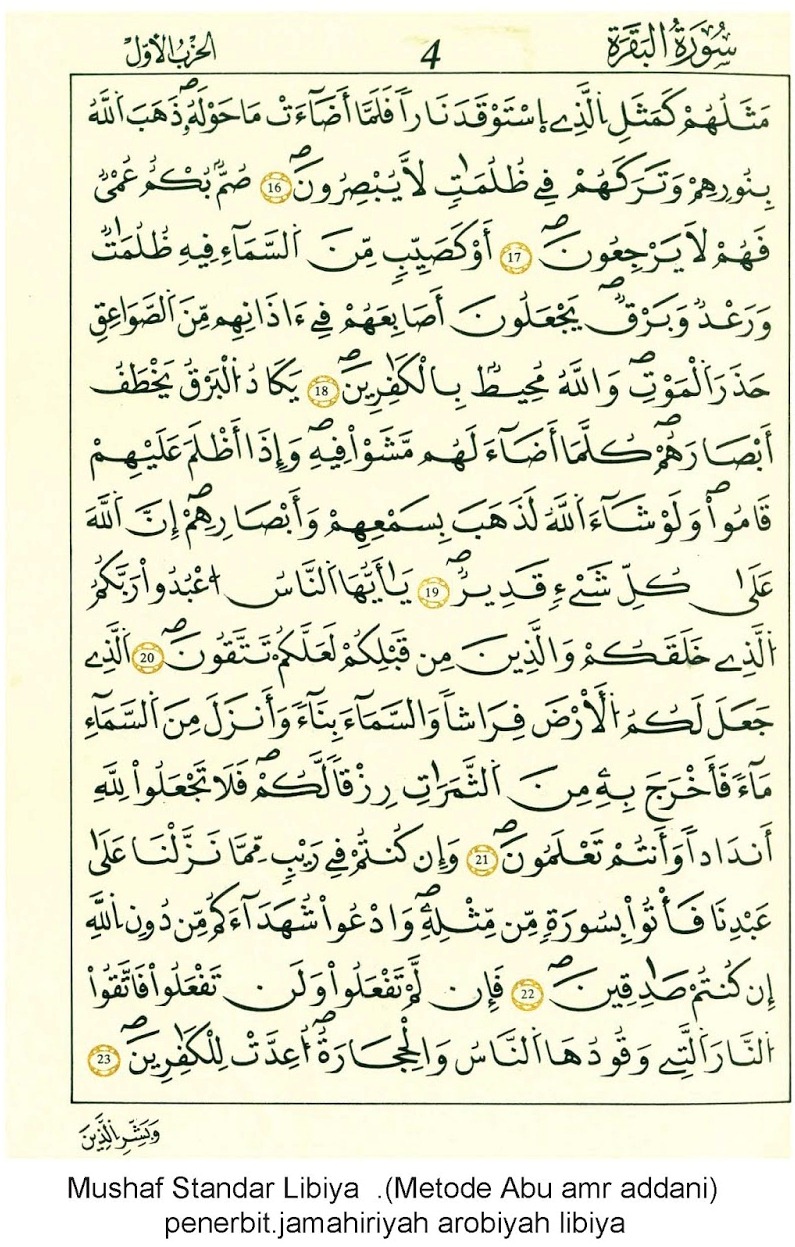 سُورَةُ الْبَقَرَةِ 4 الحِزْبُ الأوّل
مَثَلُهُمْ كَمَثَلِ اِ۬لَّذِے اِ۪سْتَوْقَدَ نَاراٗ فَلَمَّا أَضَآءَتْ مَا حَوْلَهُۥ ذَهَبَ اَ۬للَّهُ
بِنُورِهِمْ وَتَرَكَهُمْ فِے ظُلُمَٰتٖ لَّا يُبْصِرُونَۖ 16 صُمُّۢ بُكْمٌ عُمْيٞ
فَهُمْ لَا يَرْجِعُونَۖ 17 أَوْ كَصَيِّبٖ مِّنَ اَ۬لسَّمَآءِ فِيهِ ظُلُمَٰتٞ
وَرَعْدٞ وَبَرْقٞۖ يَجْعَلُونَ أَصَٰبِعَهُمْ فِےٓ ءَاذَانِهِم مِّنَ اَ۬لصَّوَٰعِقِ
حَذَرَ اَ۬لْمَوْتِۖ وَاللَّهُ مُحِيطُۢ بِالْكَٰفِرِينَۖ 18 يَكَادُ اُ۬لْبَرْقُ يَخْطَفُ
أَبْصَٰرَهُمْۖ كُلَّمَآ أَضَآءَ لَهُم مَّشَوْاْ فِيهِۖ وَإِذَآ أَظْلَمَ عَلَيْهِمْ
قَامُواْۖ وَلَوْ شَآءَ اَ۬للَّهُ لَذَهَبَ بِسَمْعِهِمْ وَأَبْصَٰرِهِمْۖ إِنَّ اَ۬للَّهَ
عَلَىٰ كُلِّ شَےْءٖ قَدِيرٞۖ 19 يَٰٓأَيُّهَا اَ۬لنَّاسُ اُ۟عْبُدُواْ رَبَّكُمُ
اُ۬لَّذِے خَلَقَكُمْ وَالَّذِينَ مِن قَبْلِكُمْ لَعَلَّكُمْ تَتَّقُونَۖ 20 اَ۬لَّذِے
جَعَلَ لَكُمُ اُ۬لْأَرْضَ فِرَٰشاٗ وَالسَّمَآءَ بِنَآءٗ وَأَنزَلَ مِنَ اَ۬لسَّمَآءِ
مَآءٗ فَأَخْرَجَ بِهِۦ مِنَ اَ۬لثَّمَرَٰتِ رِزْقاٗ لَّكُمْۖ فَلَا تَجْعَلُواْ لِلهِ
أَندَاداٗ وَأَنتُمْ تَعْلَمُونَۖ 21 وَإِن كُنتُمْ فِے رَيْبٖ مِّمَّا نَزَّلْنَا عَلَىٰ
عَبْدِنَا فَأْتُواْ بِسُورَةٖ مِّن مِّثْلِهِۦۖ وَادْعُواْ شُهَدَآءَكُم مِّن دُونِ اِ۬للَّهِ
إِن كُنتُمْ صَٰدِقِينَۖ 22 فَإِن لَّمْ تَفْعَلُواْ وَلَن تَفْعَلُواْ فَاتَّقُواْ
اُ۬لنَّارَ اَ۬لَّتِے وَقُودُهَا اَ۬لنَّاسُ وَالْحِجَارَةُۖ أُعِدَّتْ لِلْكَٰفِرِينَۖ 23
وَبَشِّرِ اِ۬لَّذِينَ
Mushaf Standar Libiya .(Metode Abu amr addani)
penerbit.jamahiriyah arobiyah libiya